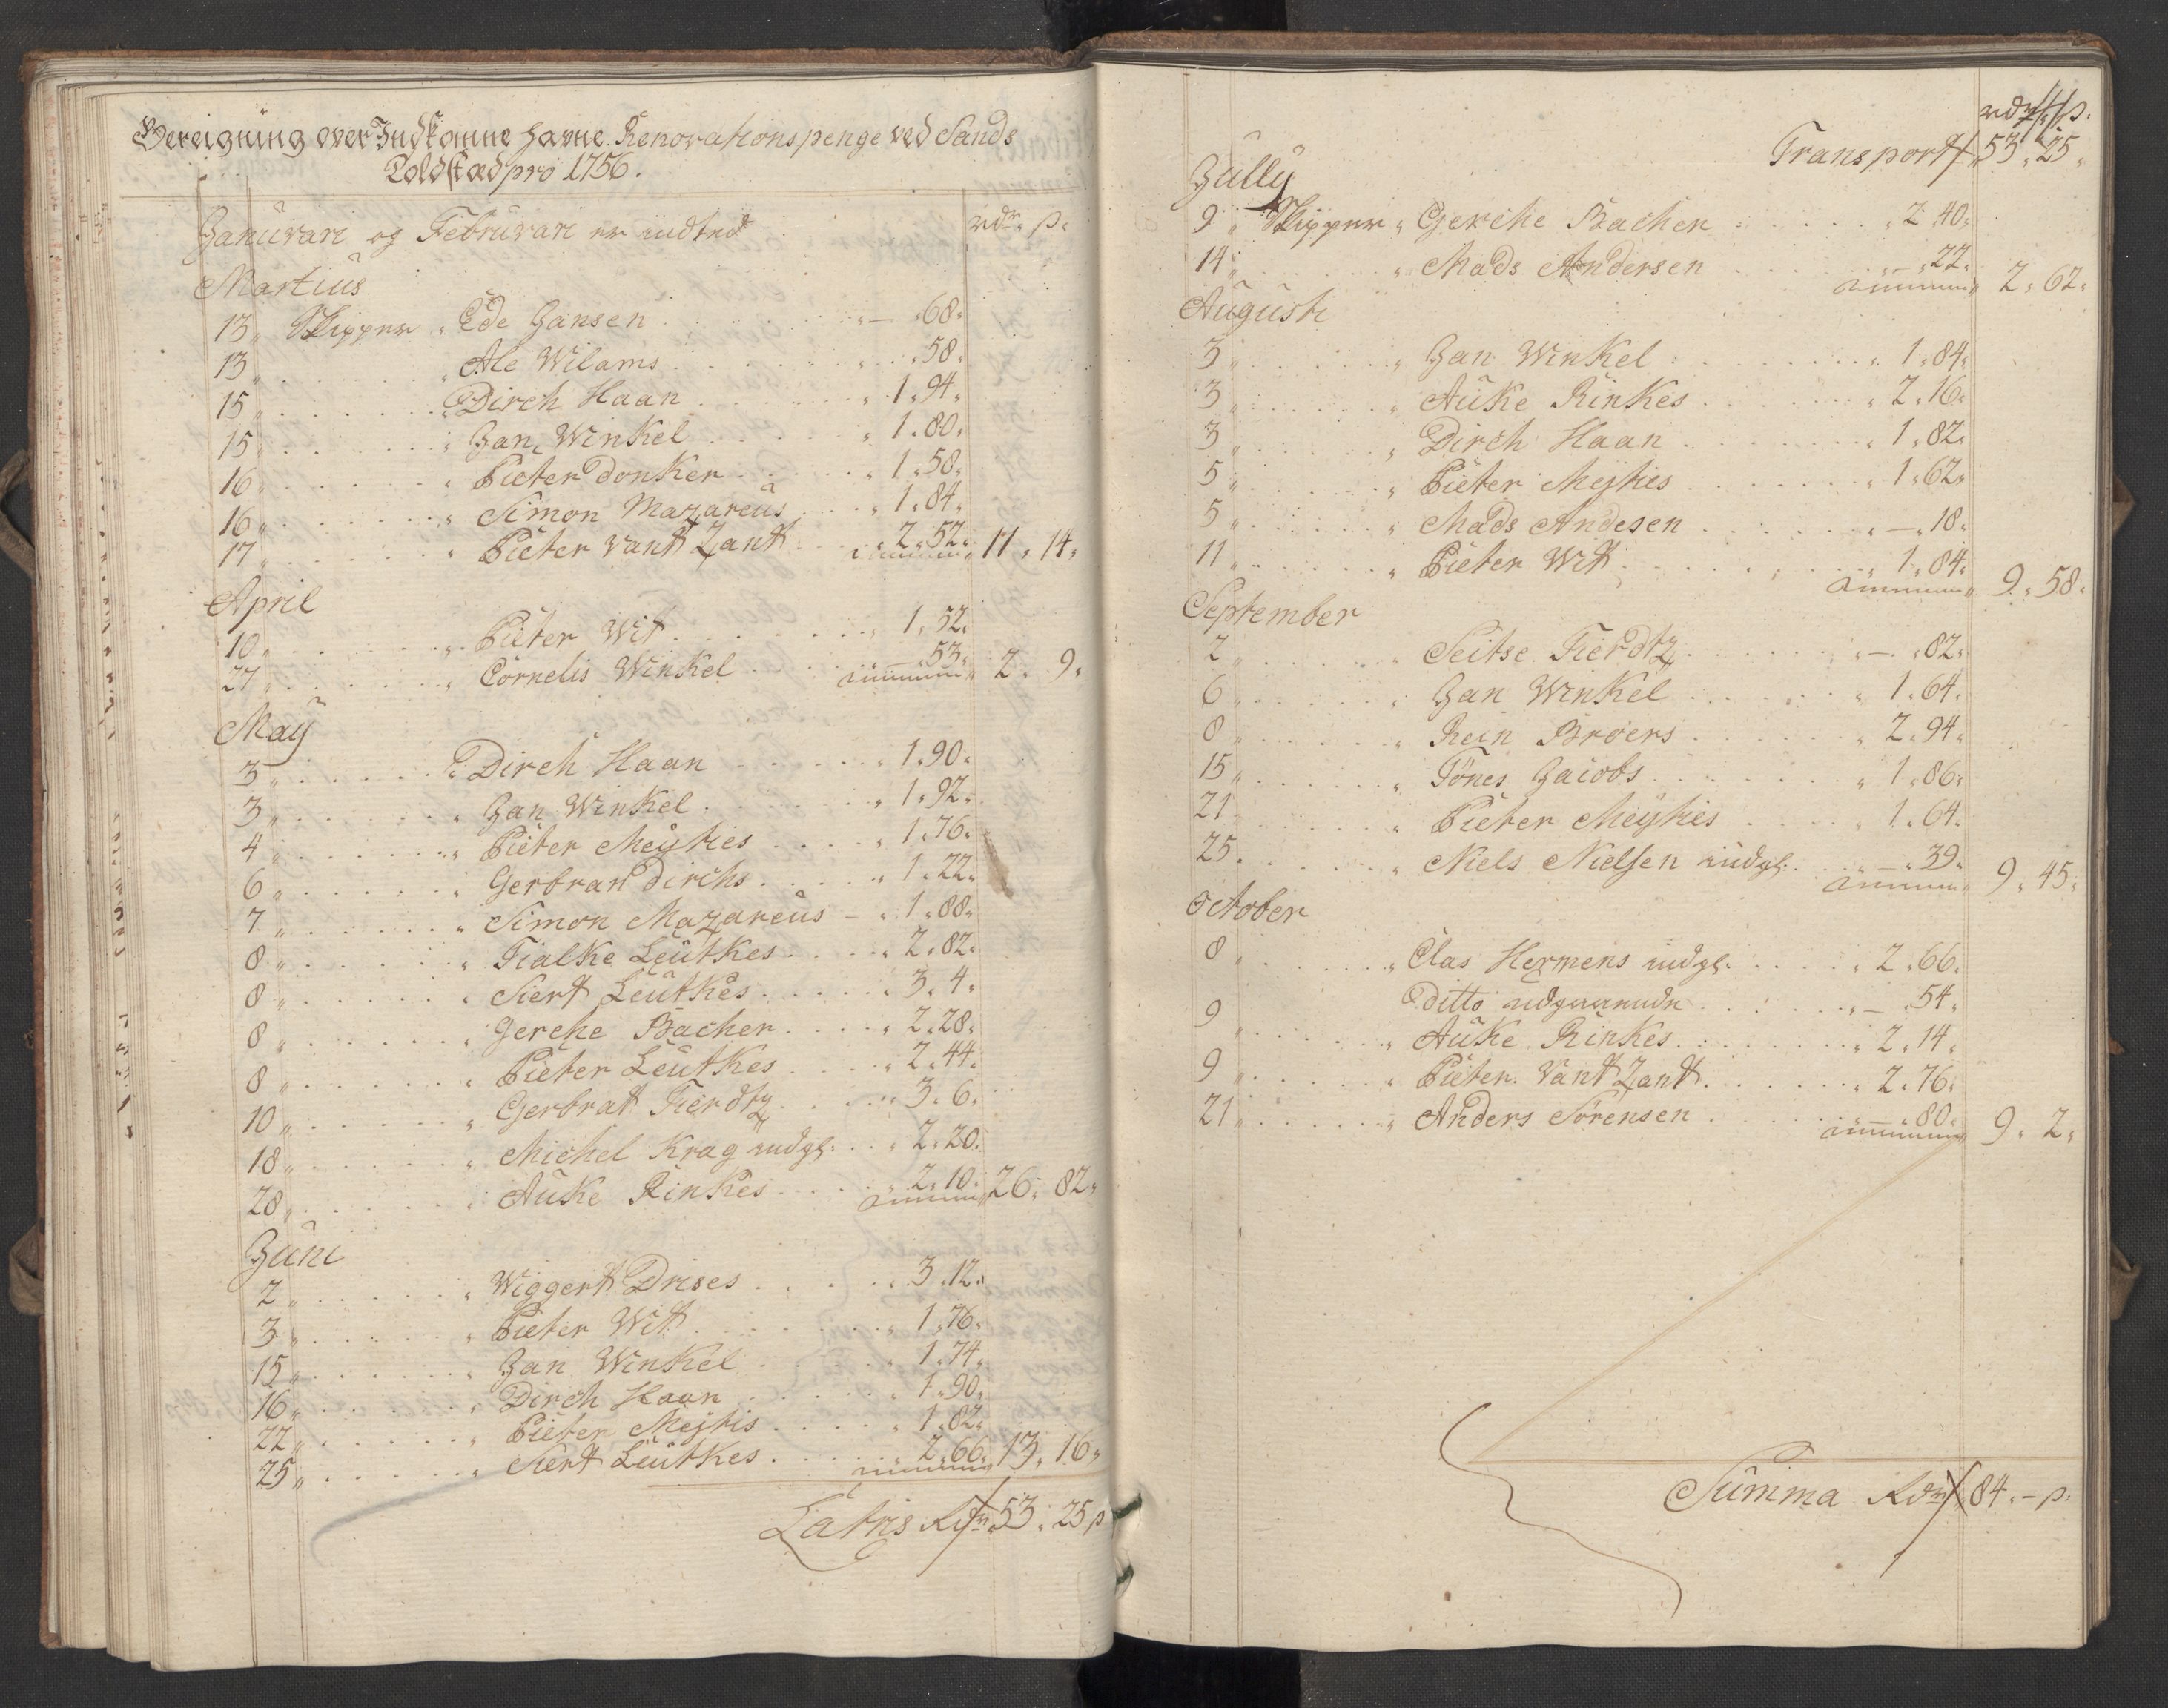 Bereigning over Indkomne Havne Renorations penge ved Sands
Toldstæd pro 1756.
rdr. β.
Januvari og Februvari er indted
Martius
13 Skipper Ede Jansen — 68
13 Ale Wilams 58
15 Dirch Haan 1. 94
15 Jan Winkel 1. 80
16 Pieter Donker 1. 58
16 Simon Mazareus 1. 84
17 Pieter Vant Zant 2. 52 11. 14
April
10 Pieter Wit 1. 52
27 Cornelis Winkel — 53 2. 9
May
3 Dirch Haan 1. 90
3 Jan Winkel 1. 92
4 Pieter Meyties 1. 76
6 Gerbran Dirchs 1. 22
7 Simon Mazareus 1. 88
8 Fialke Leutkes 2. 82
8 Siert Leutkes 3. 4
8 Gerche Bacher 2. 28
8 Pieter Leutkes 2. 44
10 Gerbrat Fierdtz 3. 6
18 Michel Krag udgl: 2. 20
28 Auke Rinkes 2. 10 26. 82
Juni
2 Wiggert Drises 3. 12
3 Pieter Wit 1. 76
15 Jan Winkel 1. 74
16 Dirch Haan 1. 90
22 Pieter Mejtis 1. 82
25 Siert Leutkes 2. 66 13. 16
Latris Rdr 53. 25 β
rdr β.
Transport 53. 25
Jully
9 Skipper Gerche Bacher 2. 40
14 Mads Andersen 22 2. 62
Augusti
3 Jan Winkel 1. 84
3 Auke Rinkes 2. 16
3 Dirch Haan 1. 82
5 Pieter Mejties 1. 62
5 Mads Andesen — 18
11 Pieter Wit 1. 84 9. 58
September
2 Seitse Fierdtz — 82
6 Jan Winkel 1. 64
8 Rein Broers 2. 94
15 Tönes Jaiobs 1. 86
21 Pieter Meyties 1. 64
25 Niels Nielsen udgl: — 39 9. 45
October
8 Clas Hermens udgl. 2. 66
Ditto — 54
9 Auke Rinkes 2. 14
9 Pieter Vant Zant 2. 76
21 Anders Sörensen — 80 9. 2
Summa Rdr 84. — β.